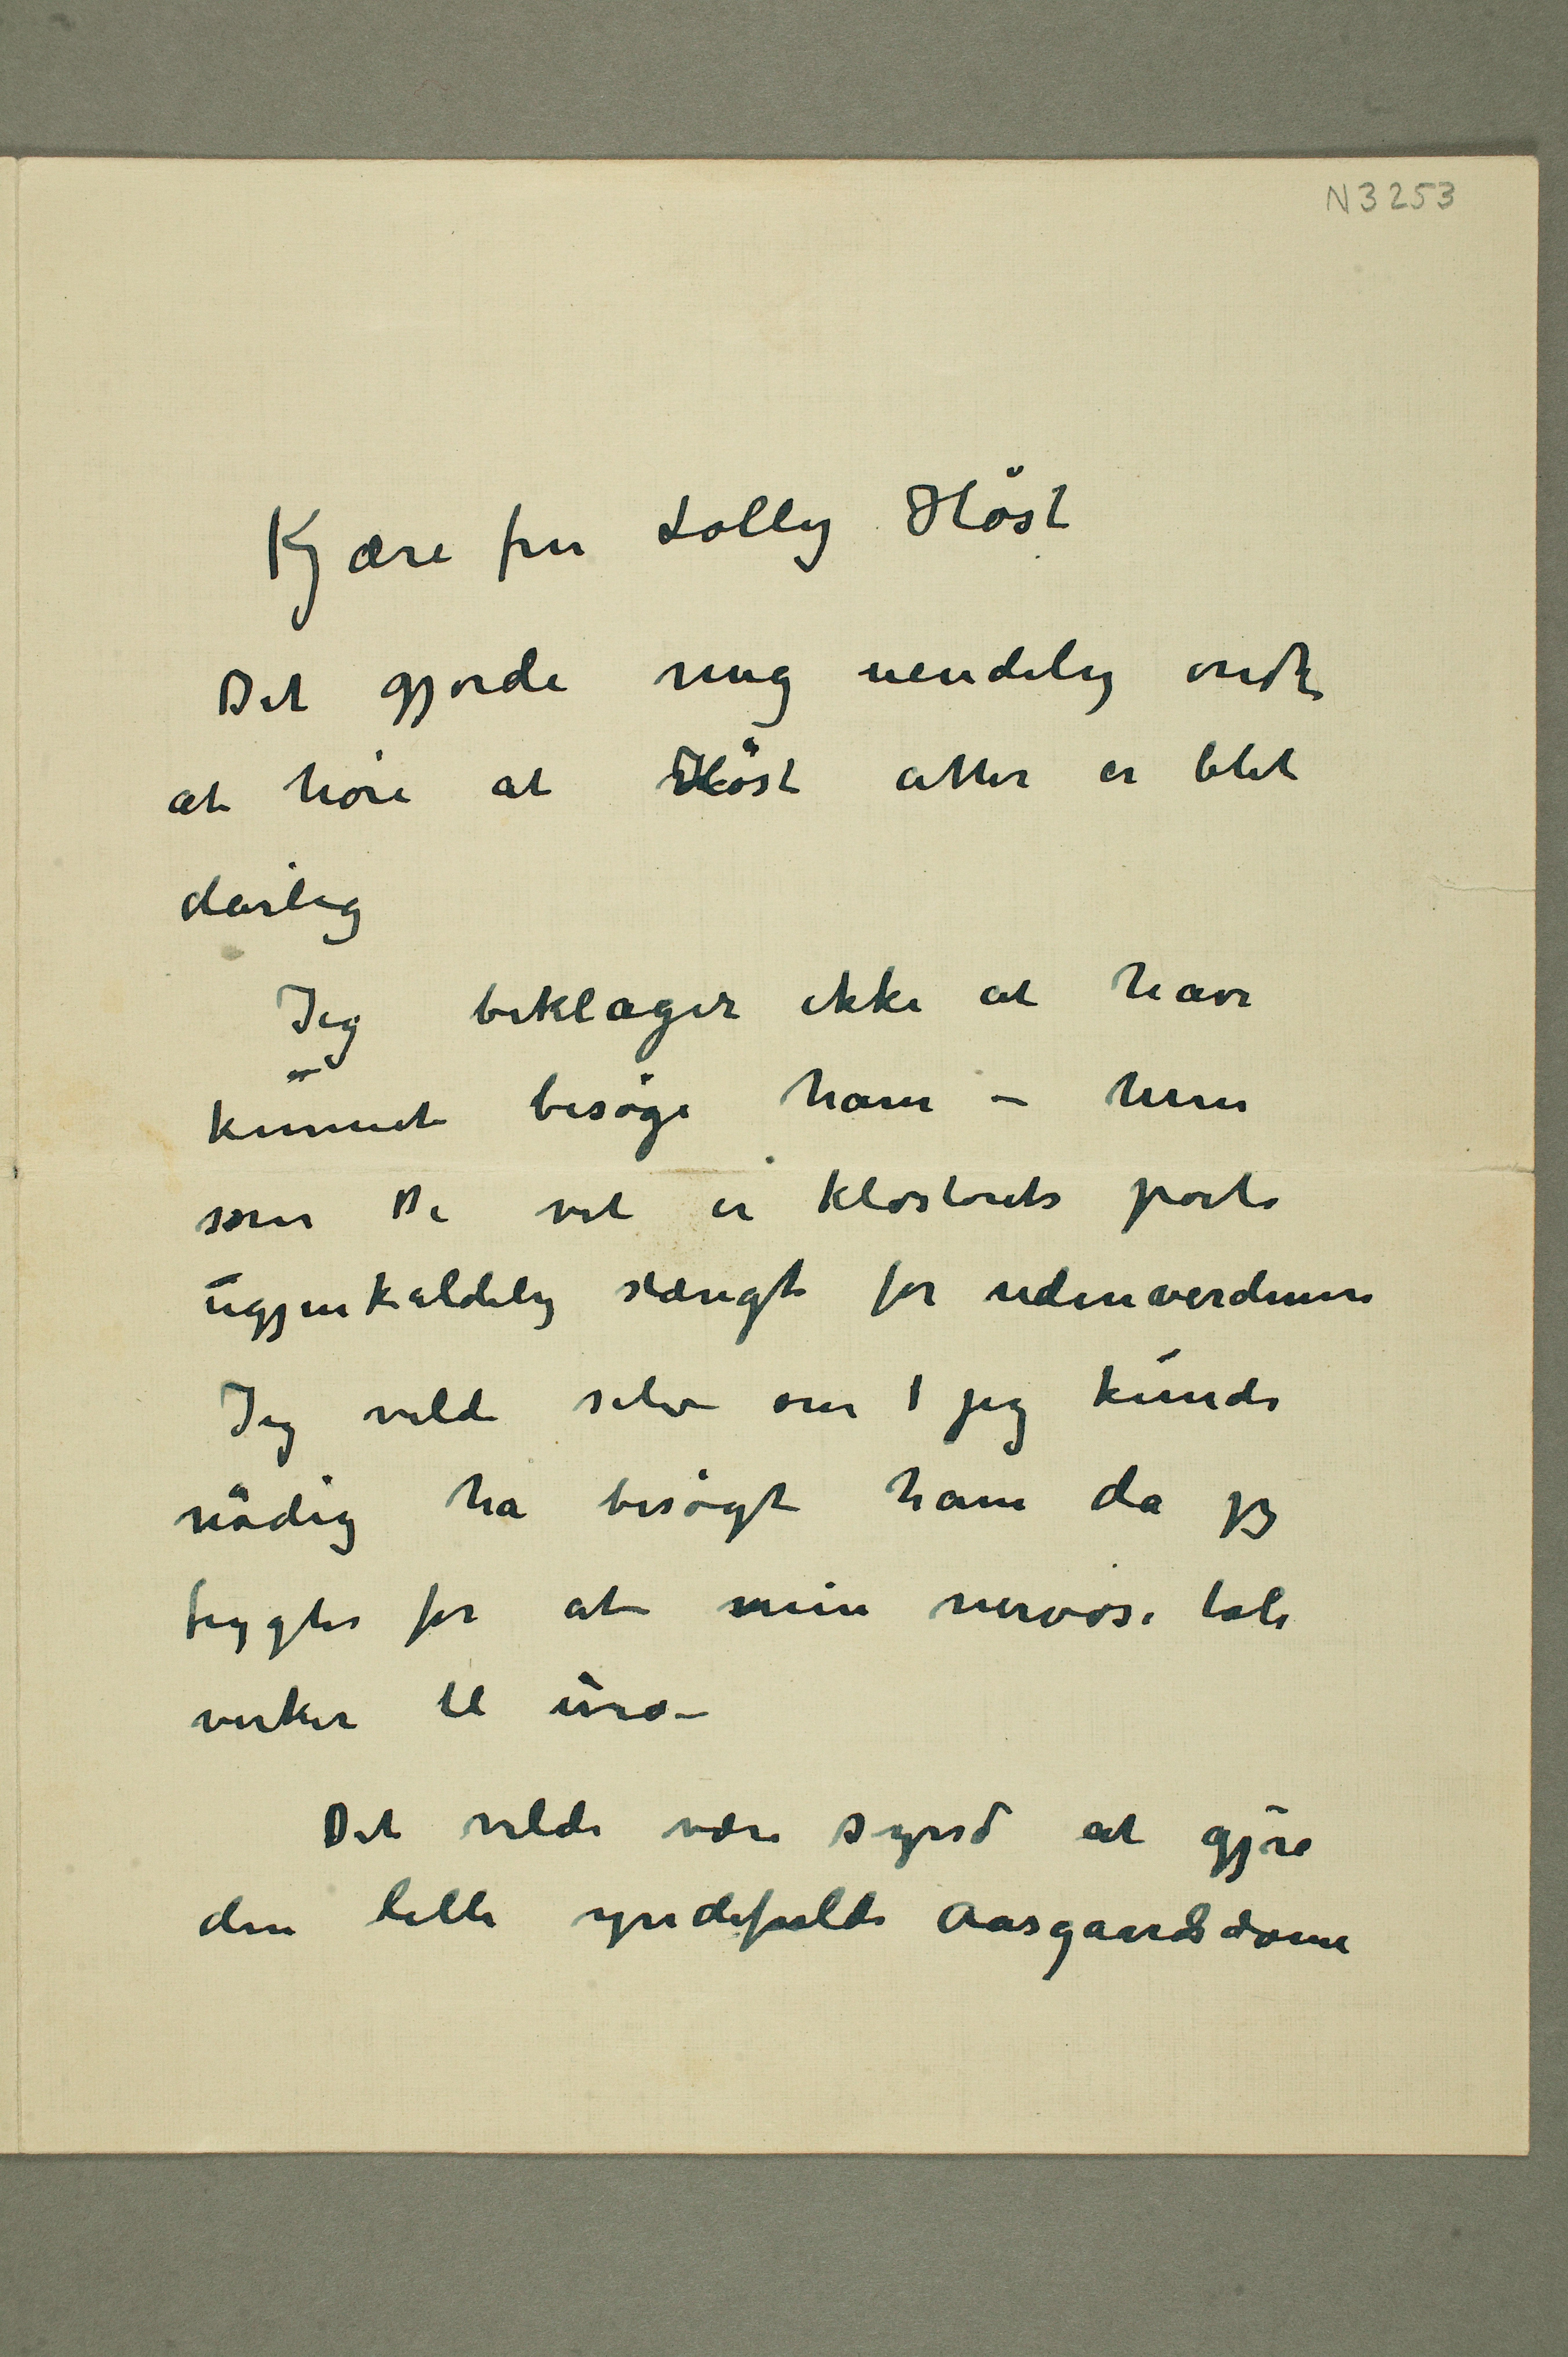 N 3253
Kjære fru Lolly Høst
Det gjorde mig uendelig ondt
at høre at Høst atter er blet
dårlig
Jeg beklager ikke at have
kunnet besøge ham – men
som De vet er klosterets porte
ugjenkaldelig stængt for udenverdenen
Jeg vilde selv om jeg kunde
nødig ha besøgt ham da jeg
frygter for at min nervøse tale
virker til uro –
Det vilde være synd at gjøre
den lille yndefulde Aasgaards